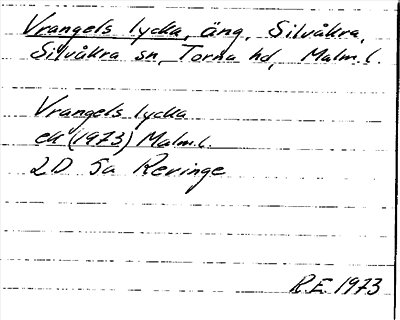 Vrangels lycka, äng, Silvåkra,
Silvåkra sn, Torna hd, Malm.l.
Vrangels lycka
ek (1973) Malm.l.
2D 5a Revinge
R.E. 1973